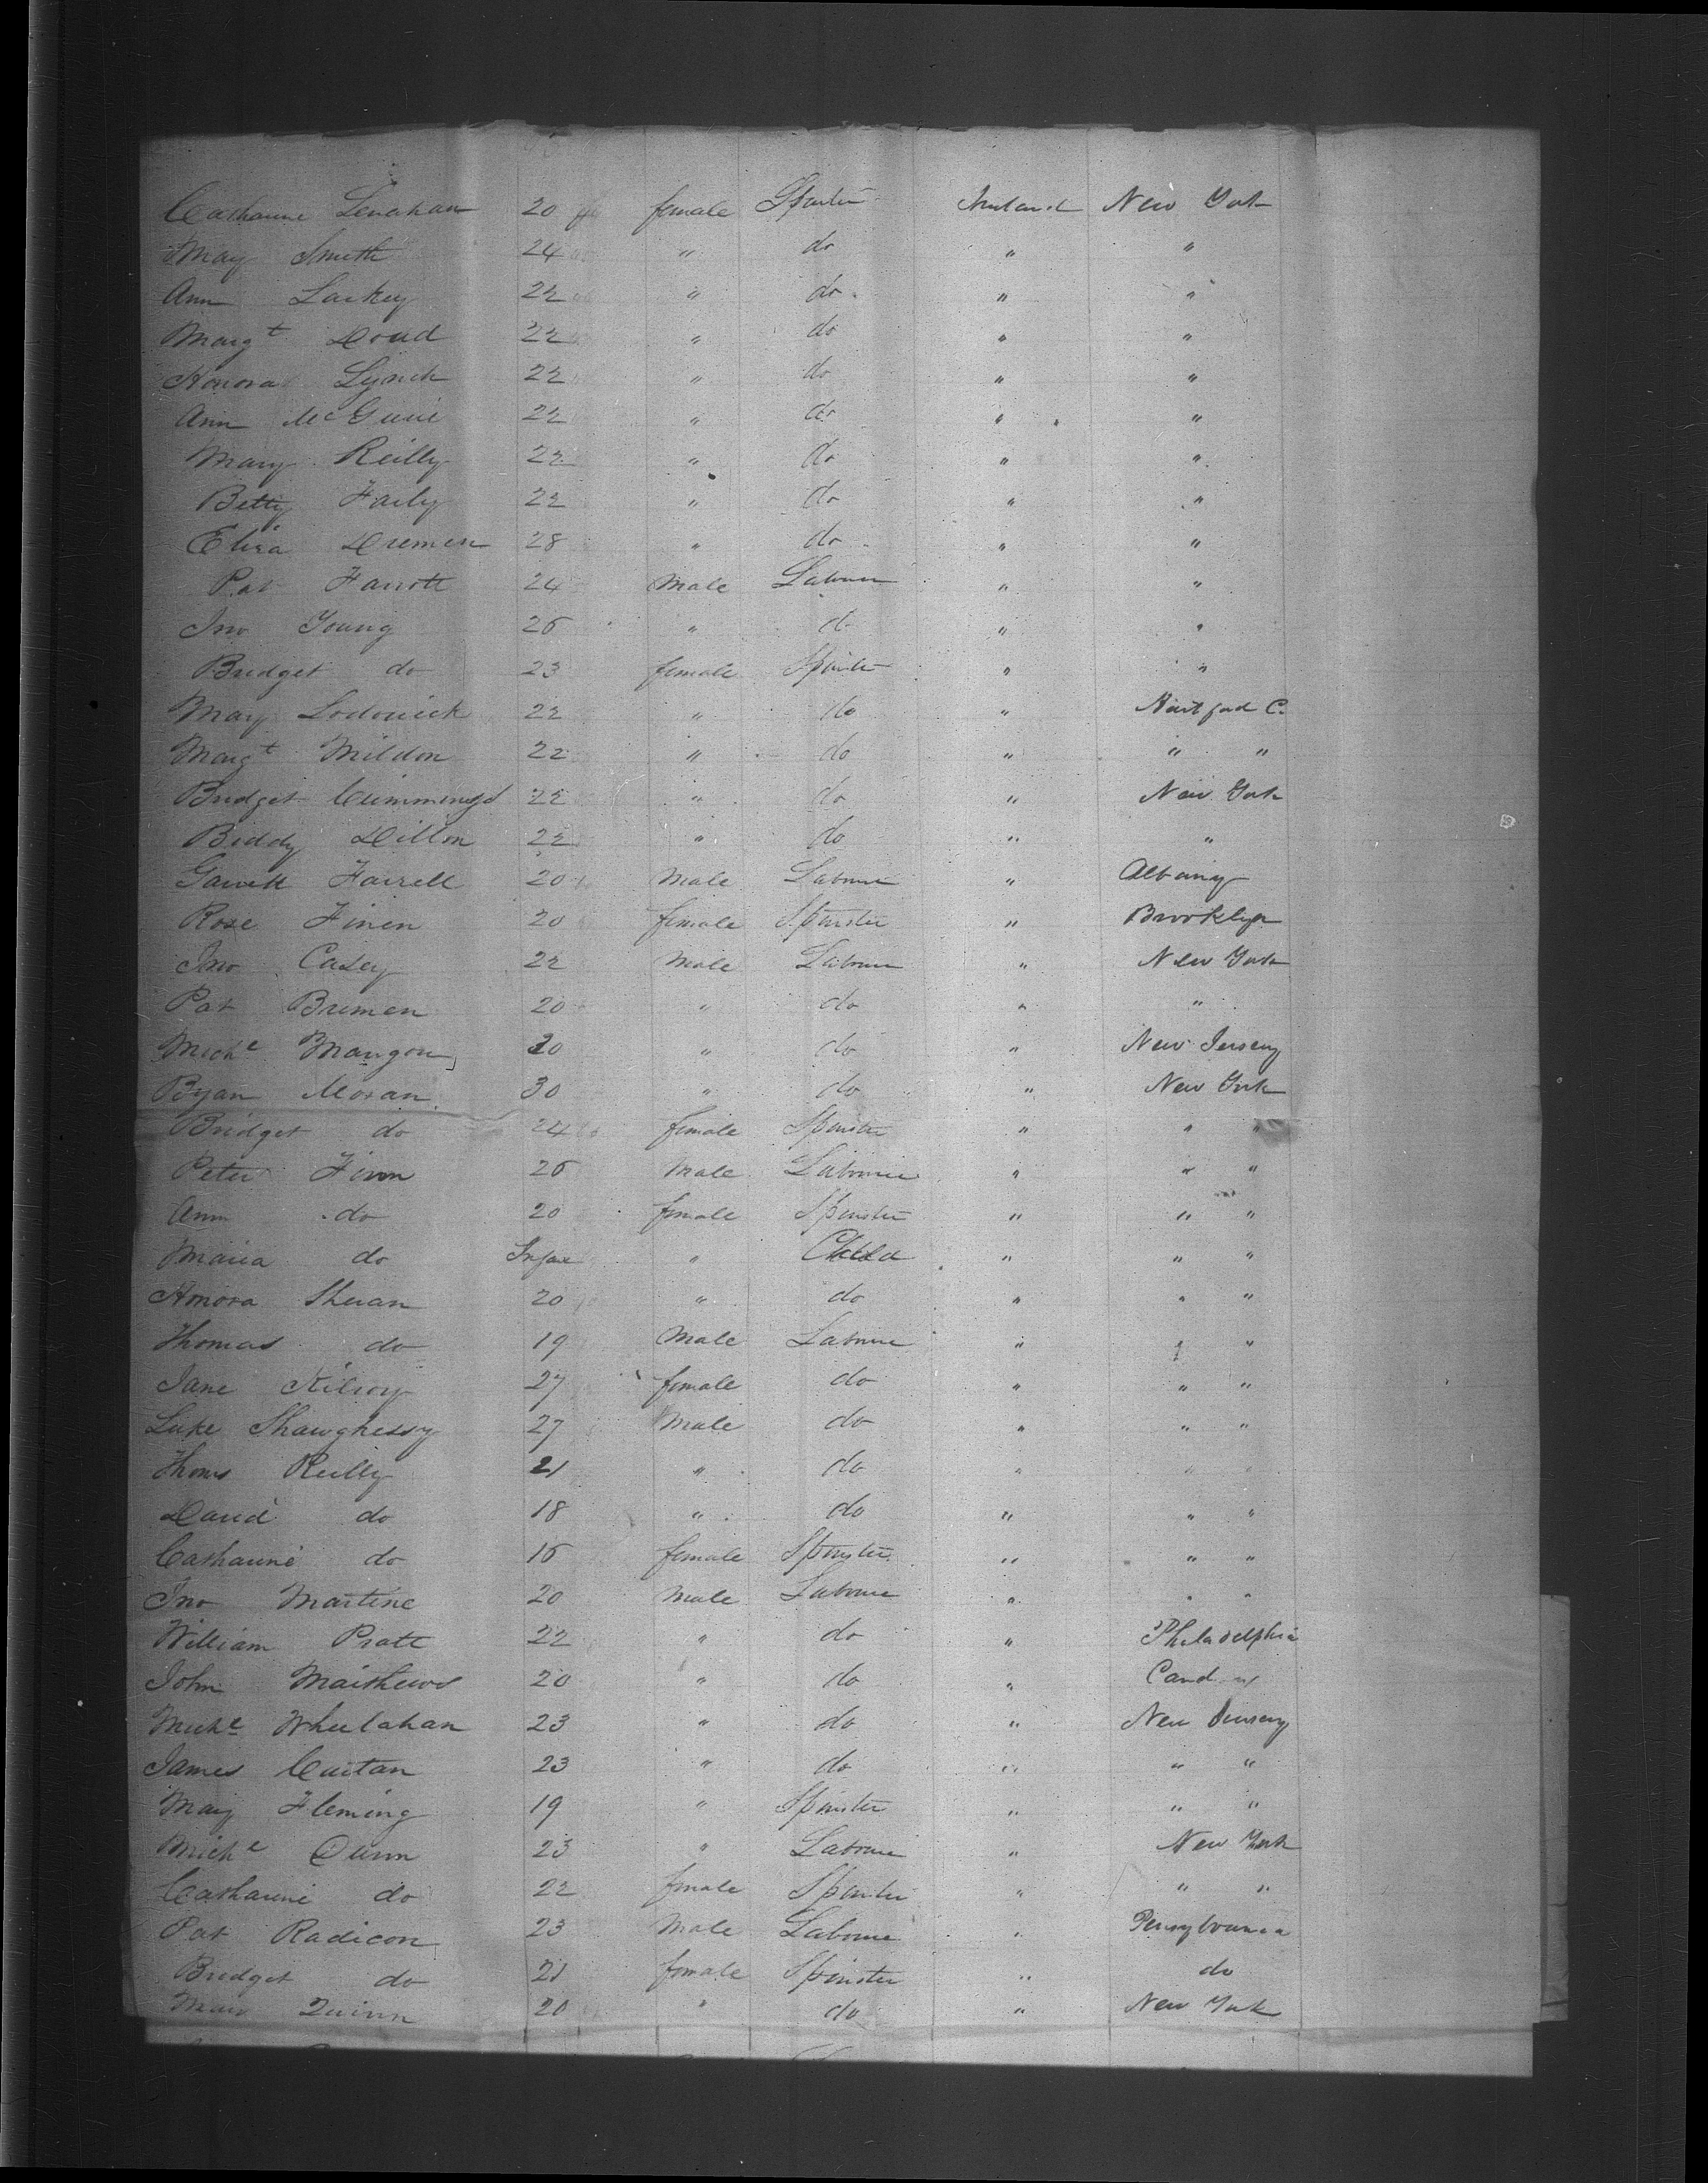 Catharine Lenahan 20 female Spinster Ireland New York
Mary Smith 24 " do " "
Ann Larkey 22 " do " "
Margt Doud 22 " do " "
Honora Lynch 22 " do " "
Ann McGuire 22 " do " "
Mary Reilly 22 " do " "
Betty Farly 22 " do " "
Eliza Dremen 28 " do " "
Pat Farrott 24 Male Labourer " "
Jno Young 26 " do " "
Bridget do 23 female Spinster " "
Mary Lodowick 22 " do " Hartford C.
Margt Mildon 22 " do " " "
Bridget Cummings 22 " do " New York
Biddy Dillon 22 " do " "
Garrett Farrell 20 Male Labourer " Albany
Rose Finen 20 female Spinster " Brooklyn
Jno Casey 22 Male Labourer " New York
Pat Bremen 20 " do " "
Miche Mangon 20 " do " New Jersey
Bryan Moran 30 " do " New York
Bridget do 24 female Spinster " " "
Peter Finn 26 Male Labourer " " "
Ann do 20 female Spinster " " "
Maria do Infant " Child " " "
Honora Sheran 20 " do " " "
Thomas do 19 Male Labourer " " "
Jane Kilroy 27 female do " " "
Luke Shawghessy 27 Male do " " "
Thoms Reilly 21 " do " " "
David do 18 " do " " "
Catharine do 16 female Spinster " " "
Jno Martine 20 Male Labourer " " "
William Pratt 22 " do " Philadelphia
John Mathews 20 " do "
Miche Wheelahan 23 " do " New Jersey
James Curtan 23 " do " " "
Mary Fleming 19 " Spinster " " "
Miche Dunn 23 " Labourer " New York
Catharine do 22 female Spinster " " "
Pat Radicon 23 Male Labourer " Pensylvania
Bridget do 21 female Spinster " do
Mary Quinn 20 " do " New York